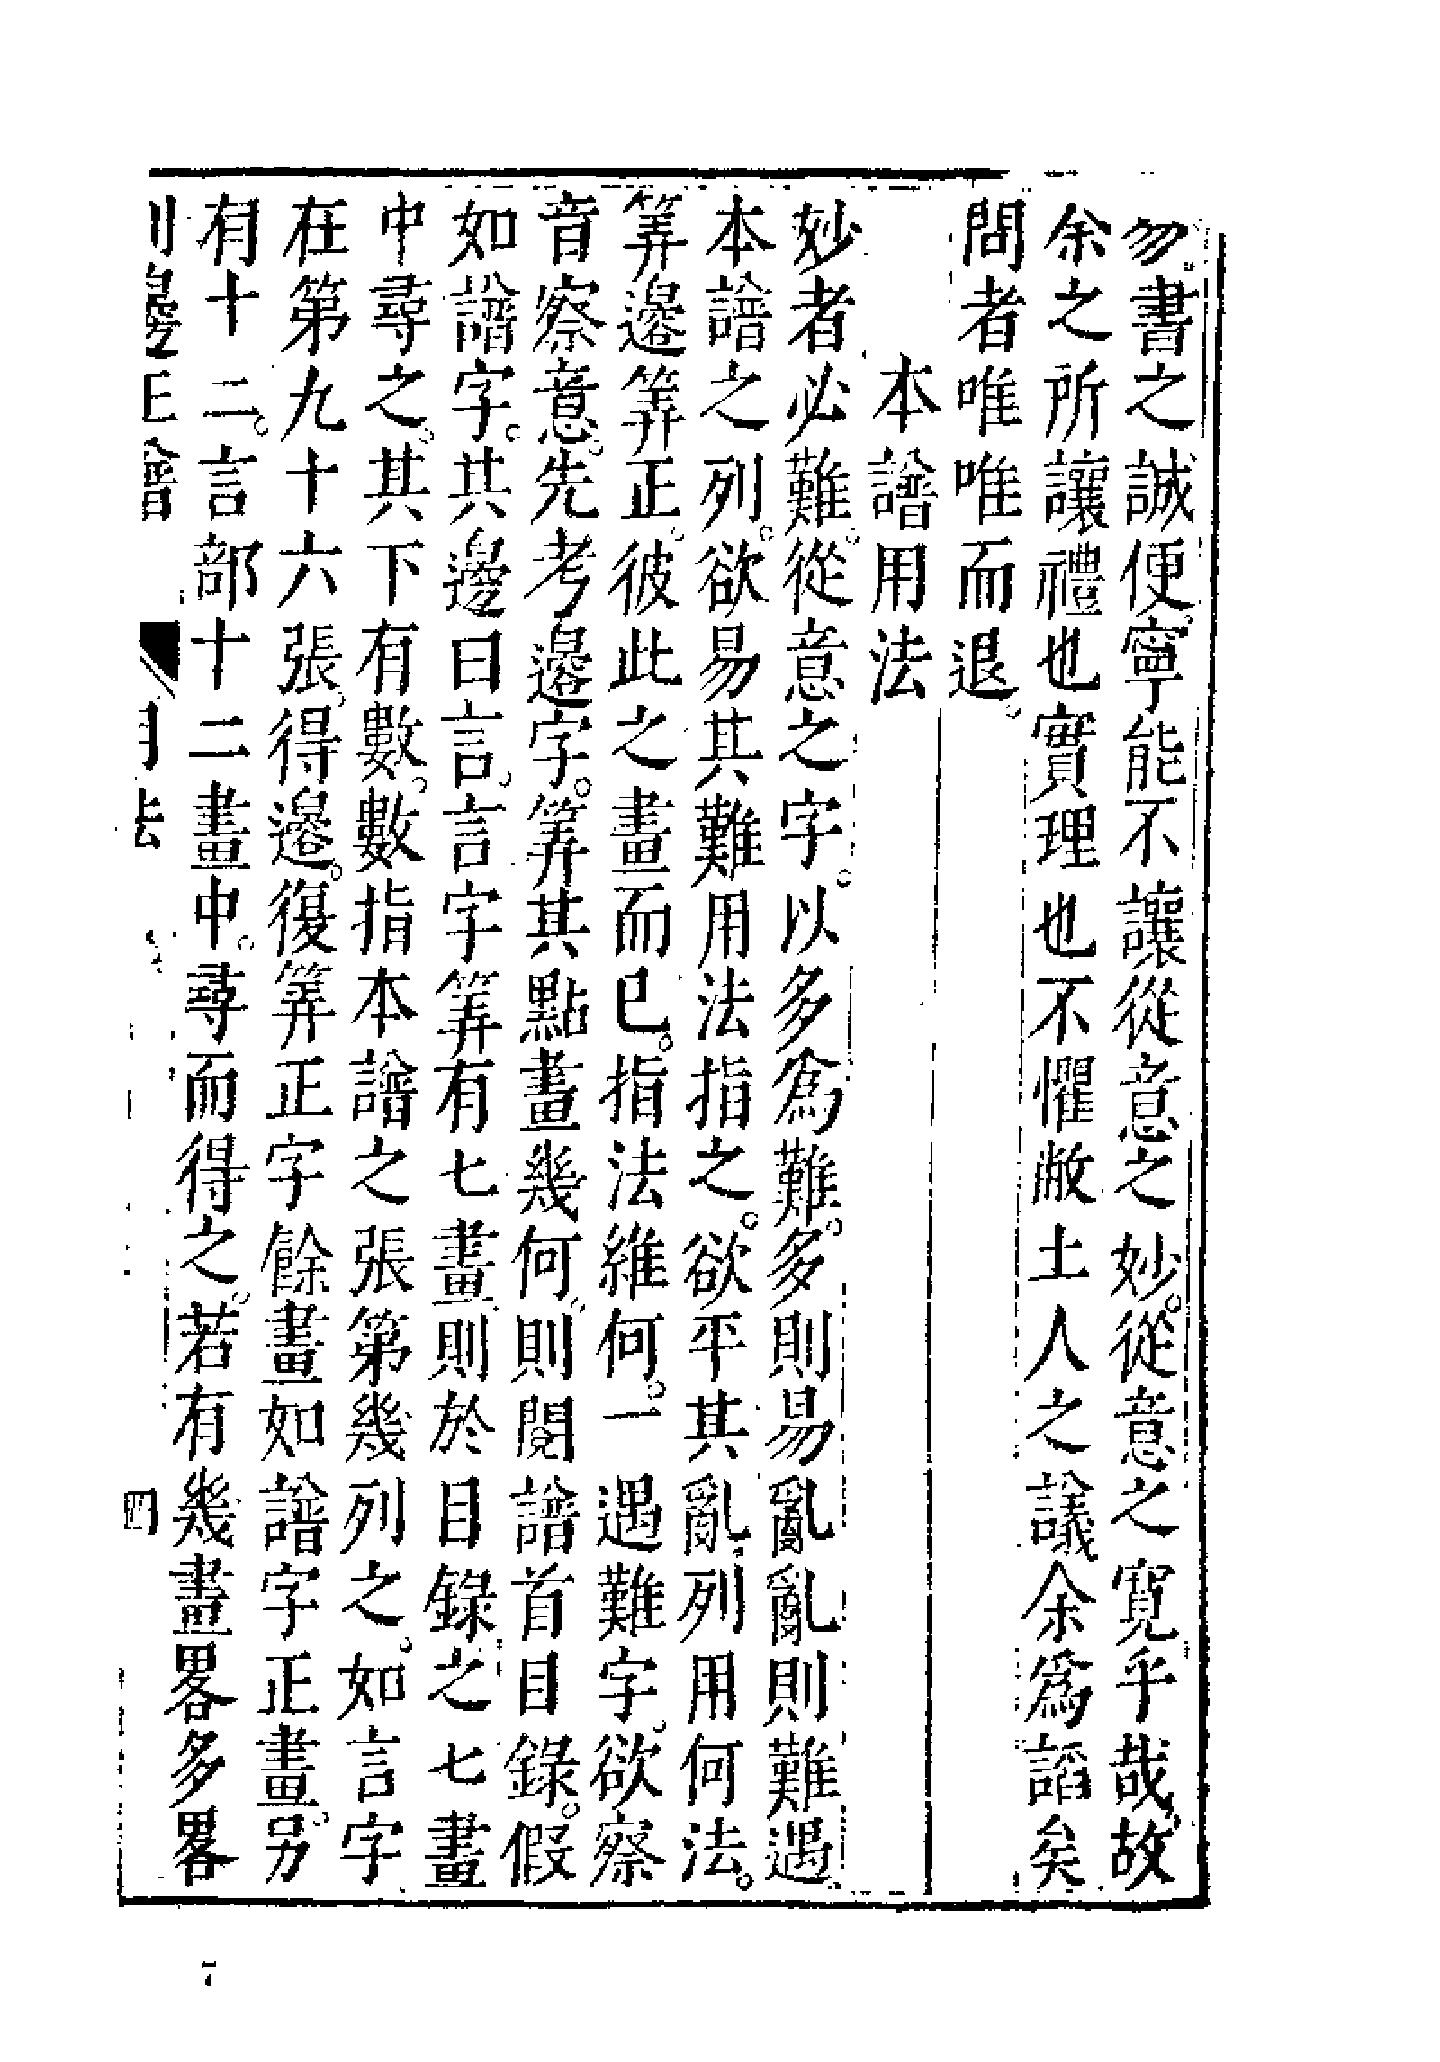 勿書之誠便寧能不讓從意之妙從意之寬乎哉故
余之所讓禮也實理也不懼敝土人之議余爲謟矣
問者唯唯而退
本譜用法
妙者必難從意之字以多爲難多則易亂亂則難遇
本譜之列欲易其難用法指之欲平其亂列用何法
筭邊筭正彼此之畫而已指法維何一遇難字欲察
音察意先考邊字筭其點畫幾何則閱譜首目錄假
如譜字其邊曰言言字筭有七畫則於目錄之七畫
中尋之其下有數數指本譜之張第幾列之如言字
在第九十六張得邊復筭正字餘畫如譜字正畫另
有十二言部十二畫中尋而得之若有幾畫畧多畧
列邊正譜
用法
四
7